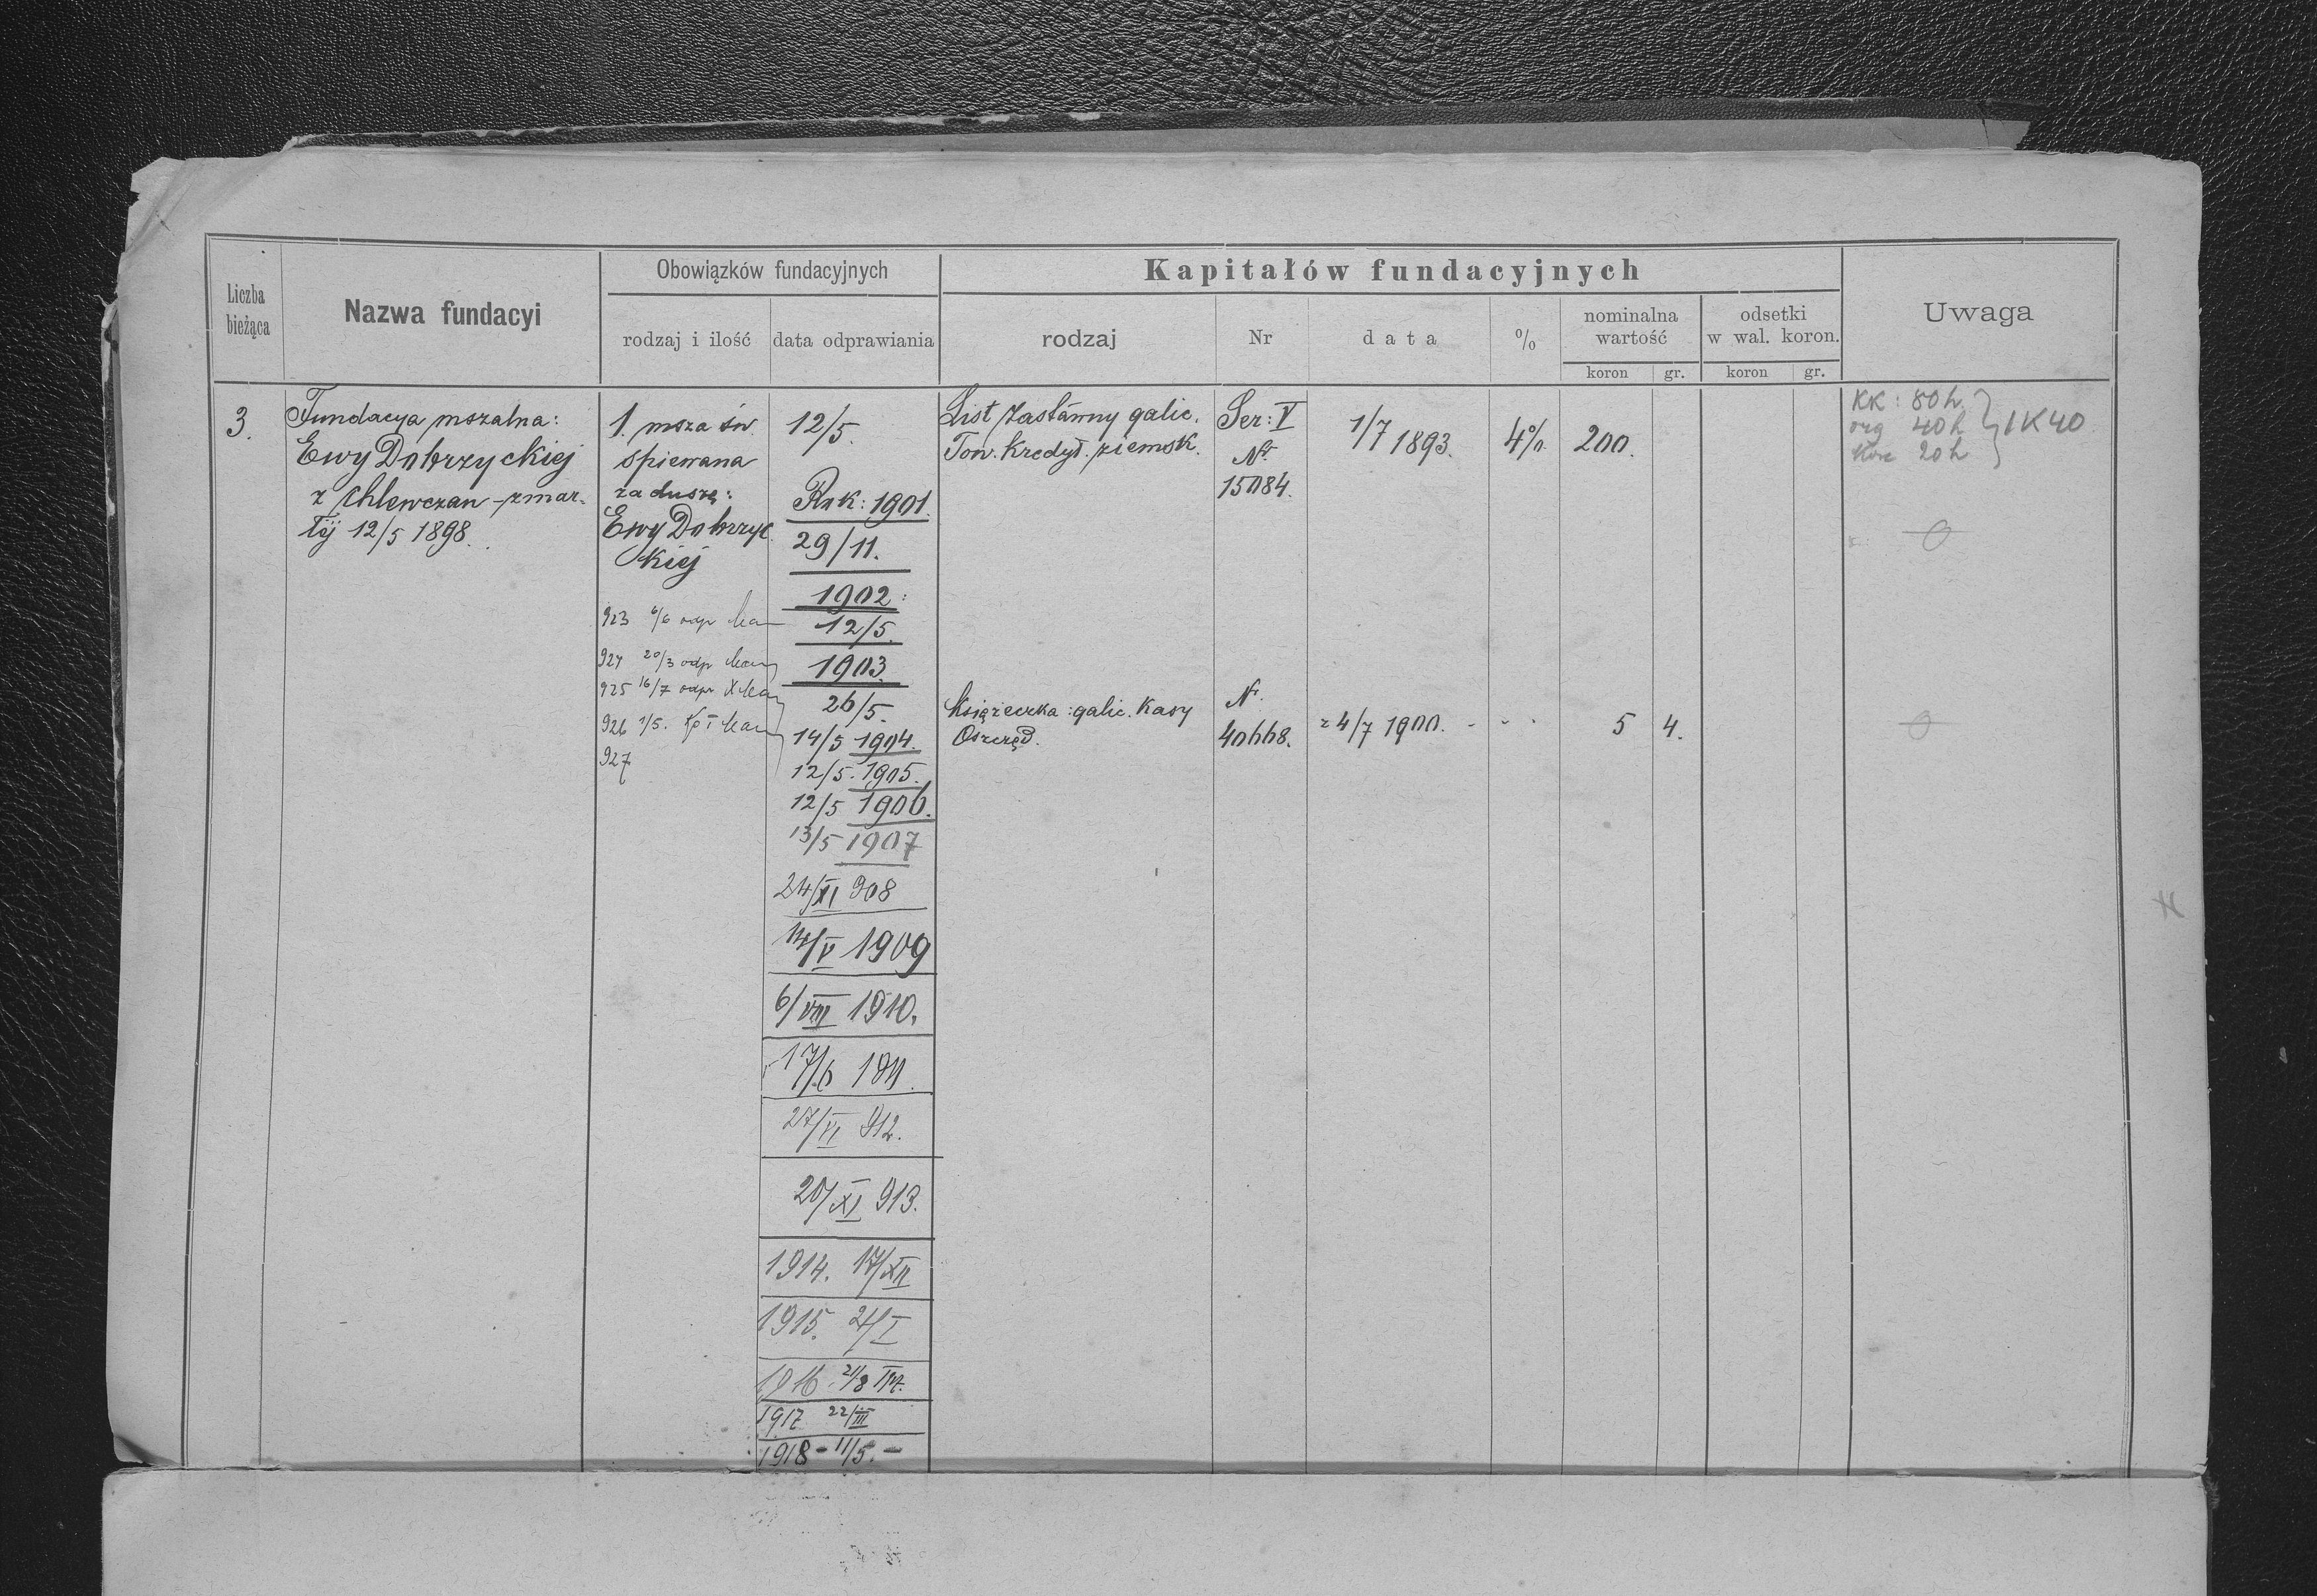 Liczba
bieżąca
Nazwa fundacyi
Obowiązków fundacyjnych
rodzaj i ilość
data odprawiania
Kapitałów fundacyjnych
rodzaj
Nr
data
%
nominalna
wartość
koron gr.
odsetki
w wal. koron.
koron gr.
Uwaga
3.
Fundacya mszalna:
Ewy Dobrzyckiej
z Chlewczan - zmar-
łéj 12/5 1898.
1. msza św
spiewana
za duszę:
Ewy Dobrzyc
kiej
923 6/6 odpr
924 20/3 odpr
925 16/7 odpr
926 1/5.
927
12/5.
Rok: 1901.
29/11.
1902:
12/5.
1903.
26/5.
14/5 1904.
12/5. 1905.
12/5 1906.
13/5 1907
24/XI 908
14/V 1909
6/VIII 1910.
17/6 1911.
27/VI 912.
20/XI 913.
1914. 17/XII
1915. 21/I
1916. 21/8
1917 22/III
1918 - 11/5. -
List zastawny galic.
Tow. kredyt. ziemsk.
Ser: V
Nr.
15084.
1/7 1893.
4%.
200.
KK: 80 h
org 40 h
20 h
1K40
Książeczka: galic. Kasy
Oszczęd.
Nr.
40668.
z 4/7 1900. - - -
5 4.